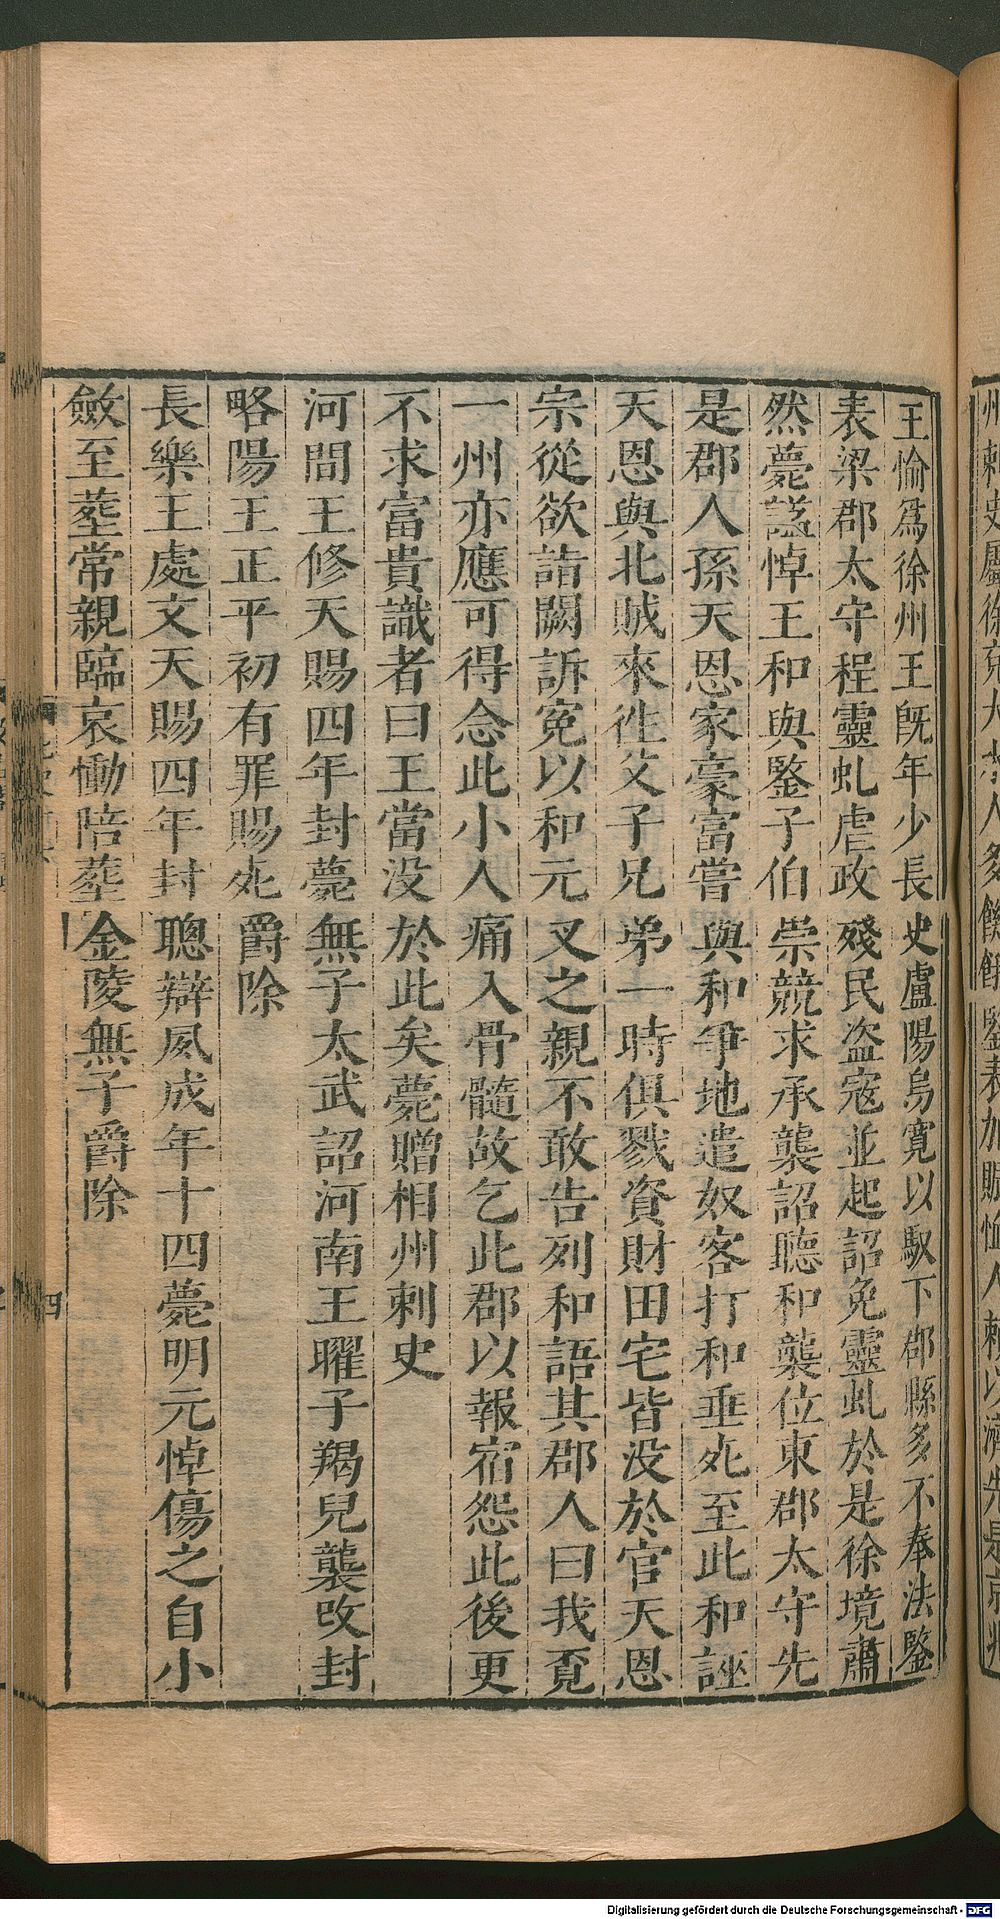 王愉爲徐州王旣年少長史盧陽烏寬以馭下郡縣多不奉法鑒
表梁郡太守程靈虬虐政殘民盜寇並起詔免靈虬於是徐境肅
然薨諡悼王和與鑒子伯崇競求承襲詔聽和襲位東郡太守先
是郡人孫天恩家豪富嘗與和爭地遣奴客打和垂死至此和誣
天恩與北賊來往父子兄弟一時俱戮資財田宅皆没於官天恩
宗從欲詣闕訴冤以和元叉之親不敢告列和語其郡人曰我覓
一州亦應可得念此小人痛入骨髓故乞此郡以報宿怨此後更
不求富貴識者曰王當没於此矣薨贈相州刺史
河間王修天賜四年封薨無子太武詔河南王曜子羯兒襲改封
略陽王正平初有罪賜死爵除
長樂王處文天賜四年封聰辯夙成年十四薨明元悼傷之自小
斂至葬常親臨哀慟陪葬金陵無子爵除
四
Digitalisierung gefördert durch die Deutsche Forschungsgemeinschaft - DFG